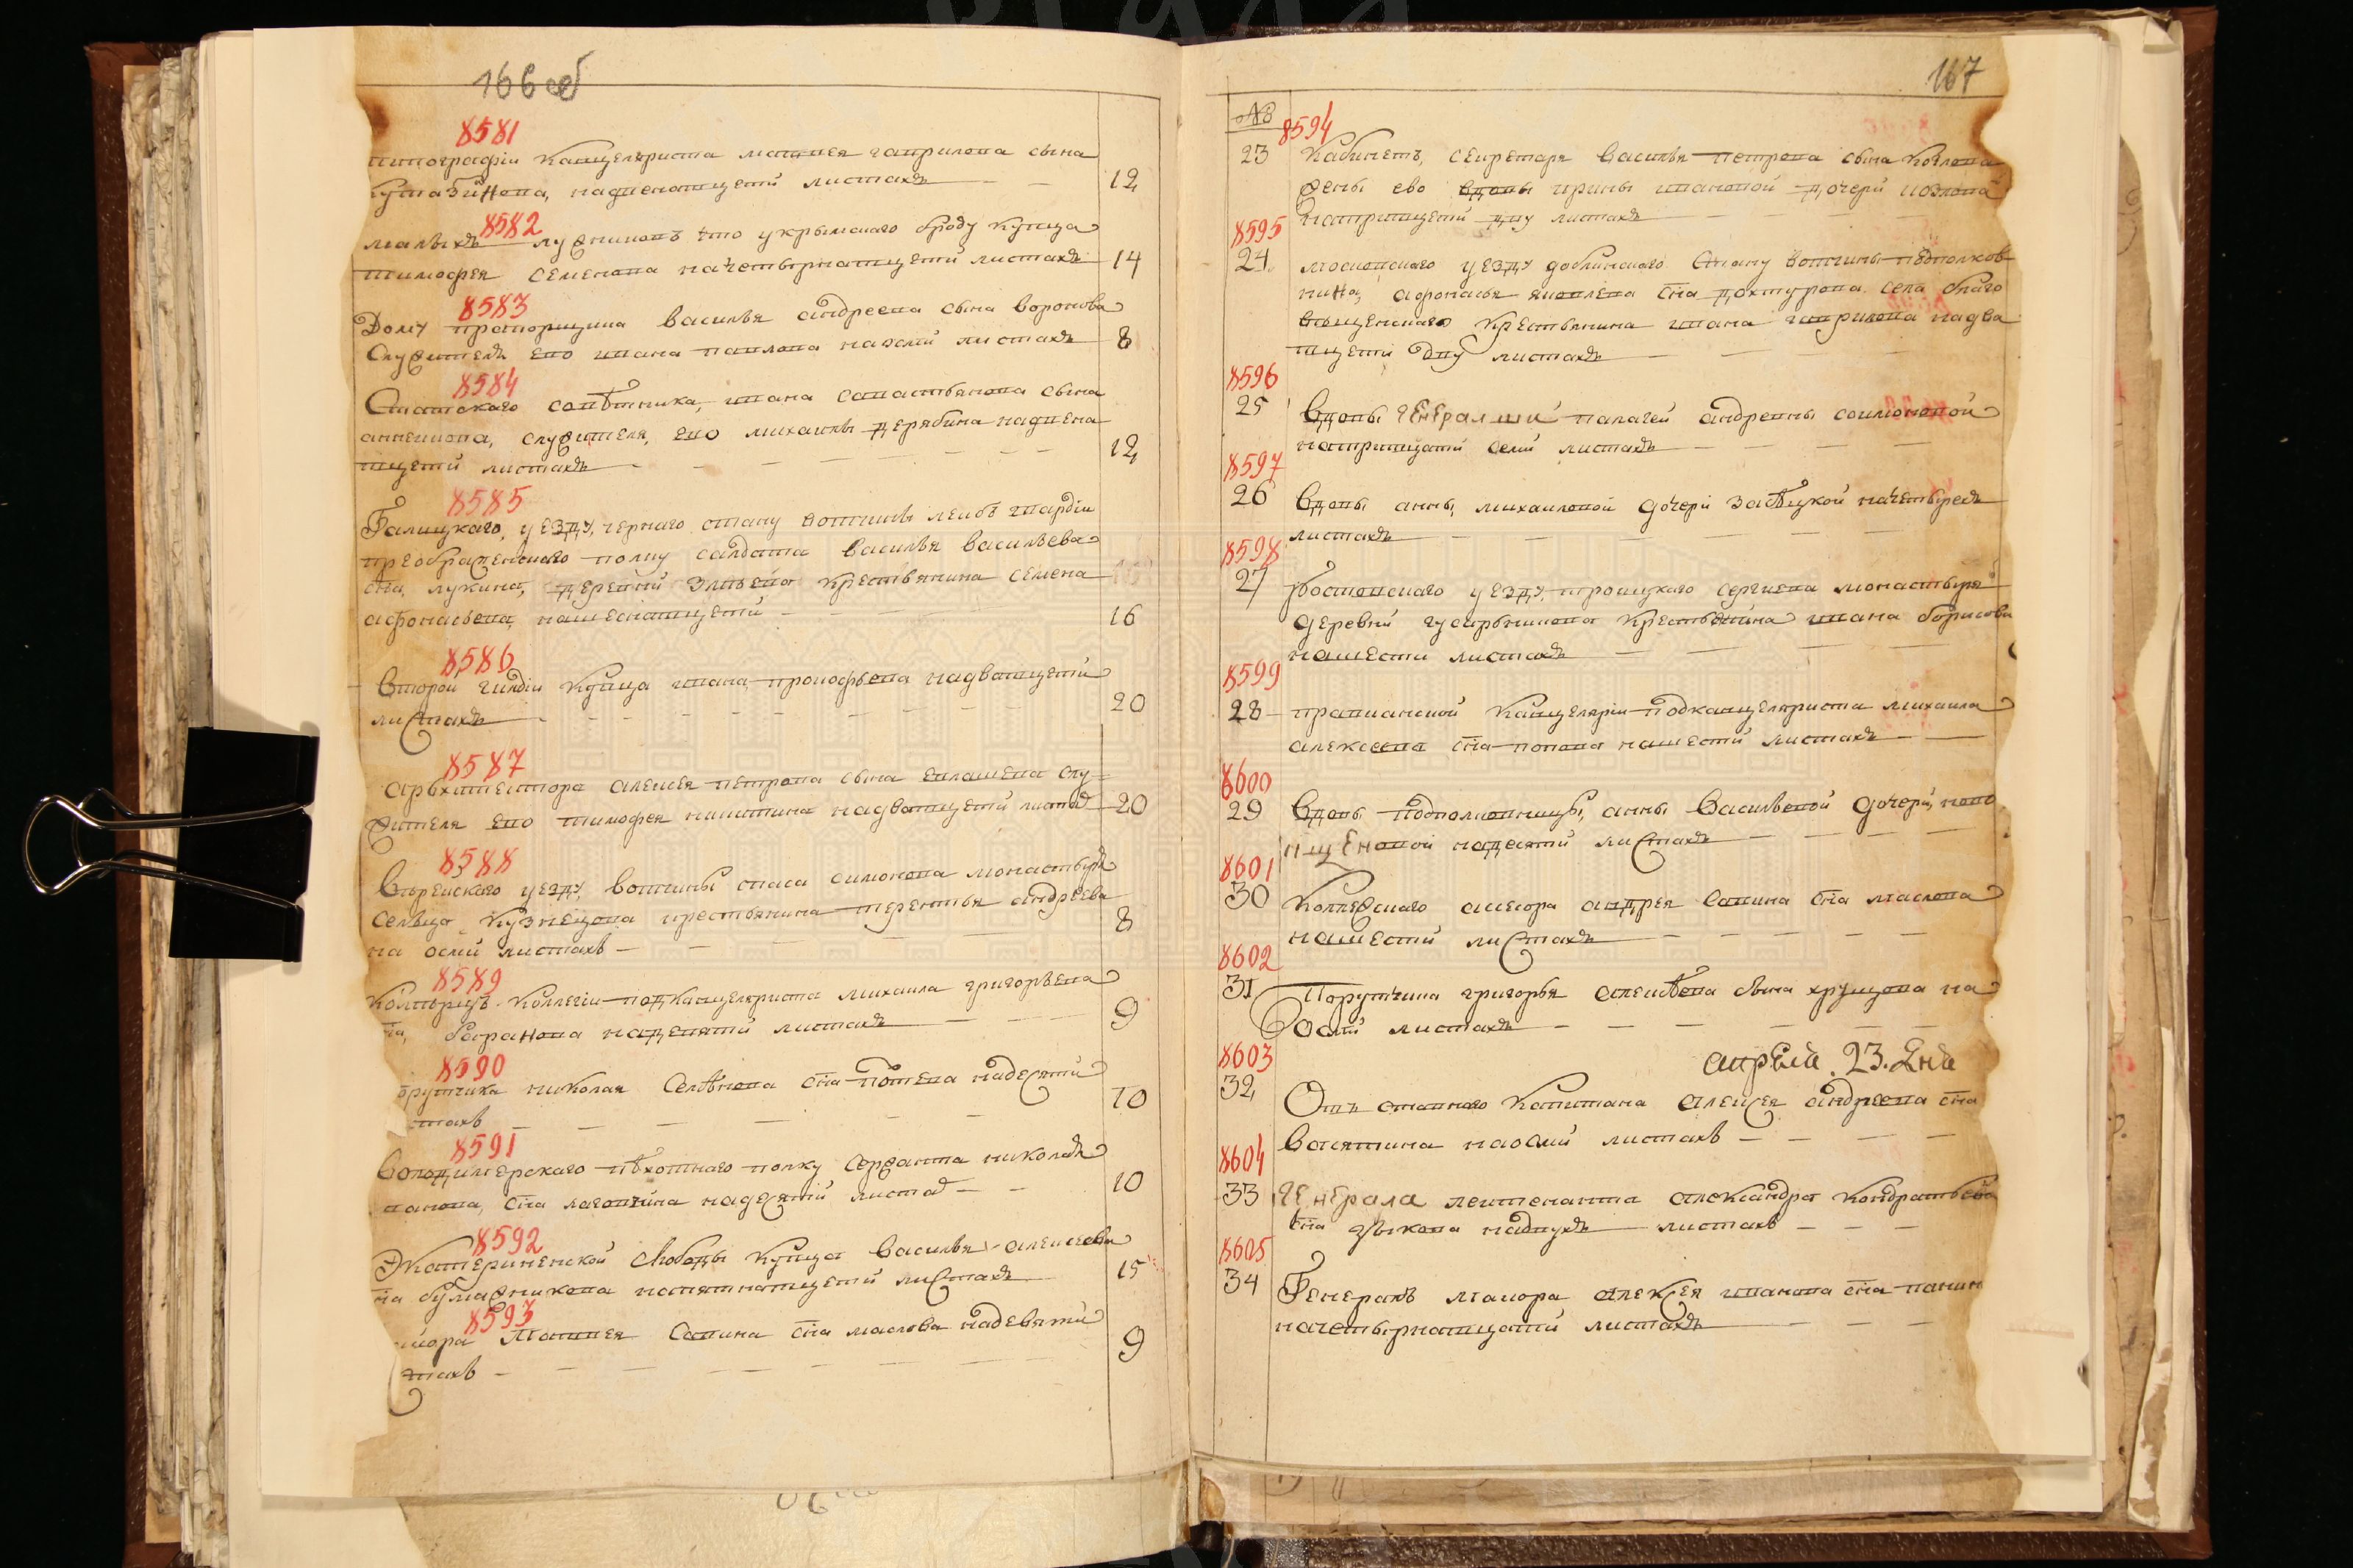 166 об
8581
типографіи канцеляриста матвея гаврилова сына
на двенатцети листахъ 12
8582
малыхъ лужниковъ что у крымского броду купца
тимофея семенова на четырнатцети листахъ 14
8583
Дому прапорщика василья андреева сына воронова
служителя ево ивана павлова на осми листахъ 8
8584
Статского советника, ивана савастьянова сына
служителя, ево михаилы дерябина на двена
тцети листахъ 12
8585
Галицкаго, уезду, черного стану вотчины леибъ гвардіи
преображенского полку салдата василья васильева
сна, лукина, деревни крестьянина семена
афонасьева, на шеснатцети 16
8586
второй гилдіи купца ивана прокофьева на дватцети
листахъ 20
8587
архитектора алексея петрова сына евлашева слу=
жителя ево тимофея никитина на дватцети листах 20
8588
Верейского уезду, вотчины спаса симонова монастыря
сельца кузнецова крестьянина терентья андреева
на осми листахъ 8
8589
Комерцъ коллегіи подканцеляриста михаила григорьева
сна, баранова на девяти листахъ 9
8590
порутчика николая сна на десяти
листахъ 10
8591
володимерскаго пехотнаго полку сержанта николая
иванова, сна на десяти листах 10
8592
Екатерининской слободы купца василья алексеева
сна бумажникова на пятнатцети листахъ 15
8593
Матвея савина сна маслова на девяти
листахъ 9
167
№
8594
23 Кабинетъ, секретаря василья петрова сына козлова
жены ево вдовы ирины ивановой дочери козлова
на тритцети дву листахъ
8595
24 московского уезду стану вотчины подполков
ника, афонасья яковлева сна дохтурова села благо
вещенского крестьянина ивана гаврилова на два
тцети дву листахъ
8596
25 Вдовы генералши палагеи андревны соимоновой
на тритцати семи листахъ
8597
26 вдовы анны, михаиловой дочери засецкой на четырехъ
листахъ
8598
27 Ростовского уезду, троицкого сергиева монастыря
деревни крестьянина ивана борисова
на шести листахъ
8599
28 правианской канцеляріи подканцеляриста михаила
алексеева сна попова на шести листахъ
8600
29 вдовы подполковницы, анны васильевой дочери, ново
кщеновой на десяти листахъ
8601
30 Коллежского асесора андрея савина сна маслова
на шести листахъ
8602
31 Порутчика григорья алексеева сына хрущова на
осми листахъ
апреля. 23. дня
8603
32 Отъ ставного капитана алексея андреева сна
васятина на осми листахъ
8604
33 Генерала леитенанта александра кондратьева
сна зыкова на двухъ листахъ
8605
34 Генералъ маиора алексея иванова сна панин
на четырнатцати листахъ